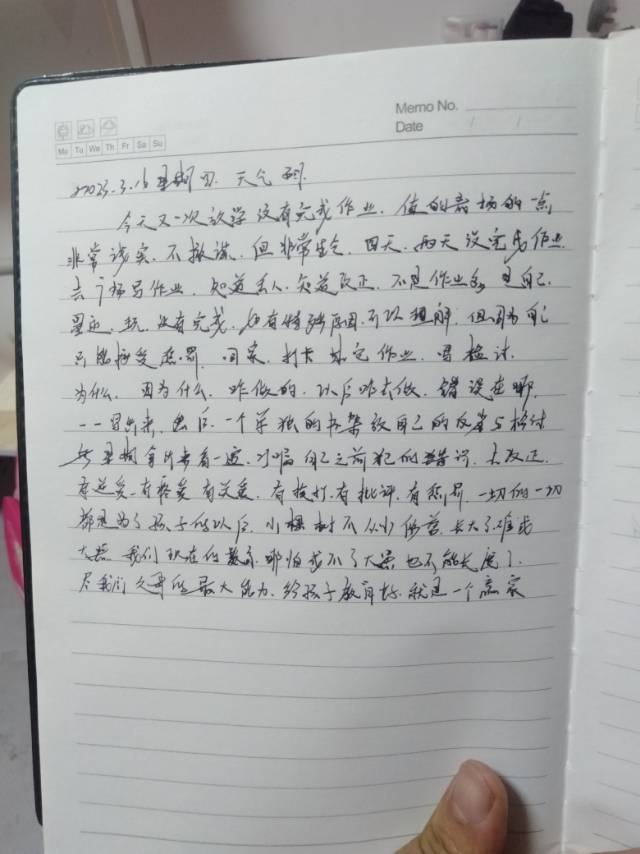 Memo No.
Date / /
Mo Tu We Th Fr Sa Su
2023.3.16 星期四. 天气 阴.
今天又一次放学没有完成作业. 值的表扬的一点
非常诚实. 不撒谎. 但非常生气. 四天. 两天没完成作业.
去广场写作业. 知道丢人. 知道改正. 不是作业多 是自己
没有完成. 也有特殊原因. 可以理解. 但因为自己
只能接受惩罚. 回来. 打卡 作业. 写检讨.
为什么. 因为什么. 咋做的. 以后咋去做. 错误在哪.
一一写出来. 然后. 一个单独的书架放自己的反省与检讨
每星期拿出来看一遍. 自己之前犯的错误. 去改正.
有逆爱. 有疼爱 有关爱. 有挨打. 有批评. 有惩罚. 一切的一切
都是为了孩子的以后. 小树不从小修着. 长大了难成
大器. 我们现在的教育. 哪怕成不了大器 也不能长废了.
尽我们父母的最大能力. 给孩子教育好. 就是一个赢家